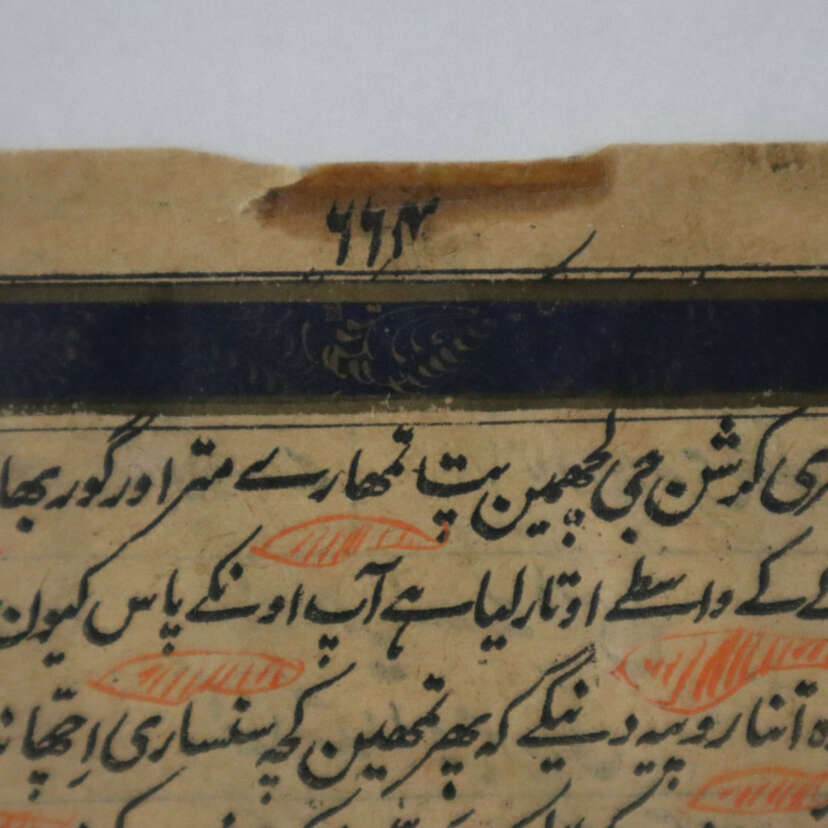 ۶۶۳
کرشن جی لچھمین پت تمھارے متر اور گور
کے واسطے اوتار لیا ہے آپ اونکے پاس کیون
اتنا روپیہ دینگے کہ پھر تمھین کچھ سنساری اِچھا